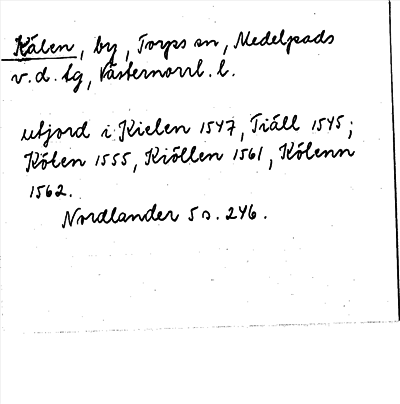 Kälen, by, Torps sn, Medelpads
v. d. tg, Västernorrl. l.
utjord i Kielen 1547, Tiäll 1545;
Kölen 1555, Kiöllen 1561, Kölenn
1562.
Nordlander 5 s. 246.